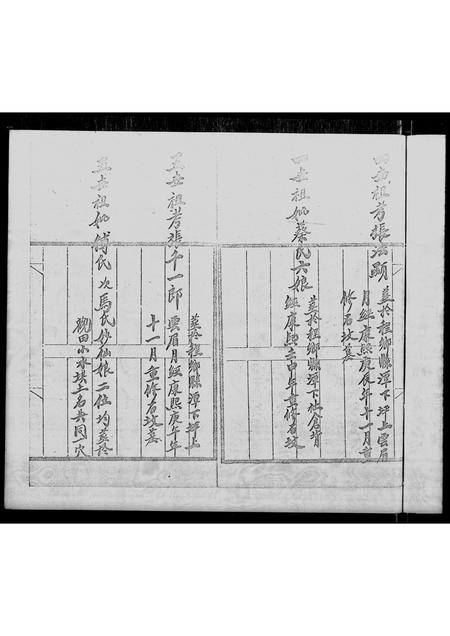 四世祖考張法顯 葬於程鄉縣潭下坪上雲眉
月經康熙庚辰年十一月重
修石坟墓
四世祖妣蔡氏六娘 葬於程鄉縣潭下社倉背
經康熙壬申年重修石坟
五世祖考張千一郎 葬於程鄉縣潭下坪上
雲眉月經康熙庚午年
十一月重修石坟墓
五世祖妣傅氏次馬氏妙仙娘二位均葬於
硯田小水埧土名共同一穴